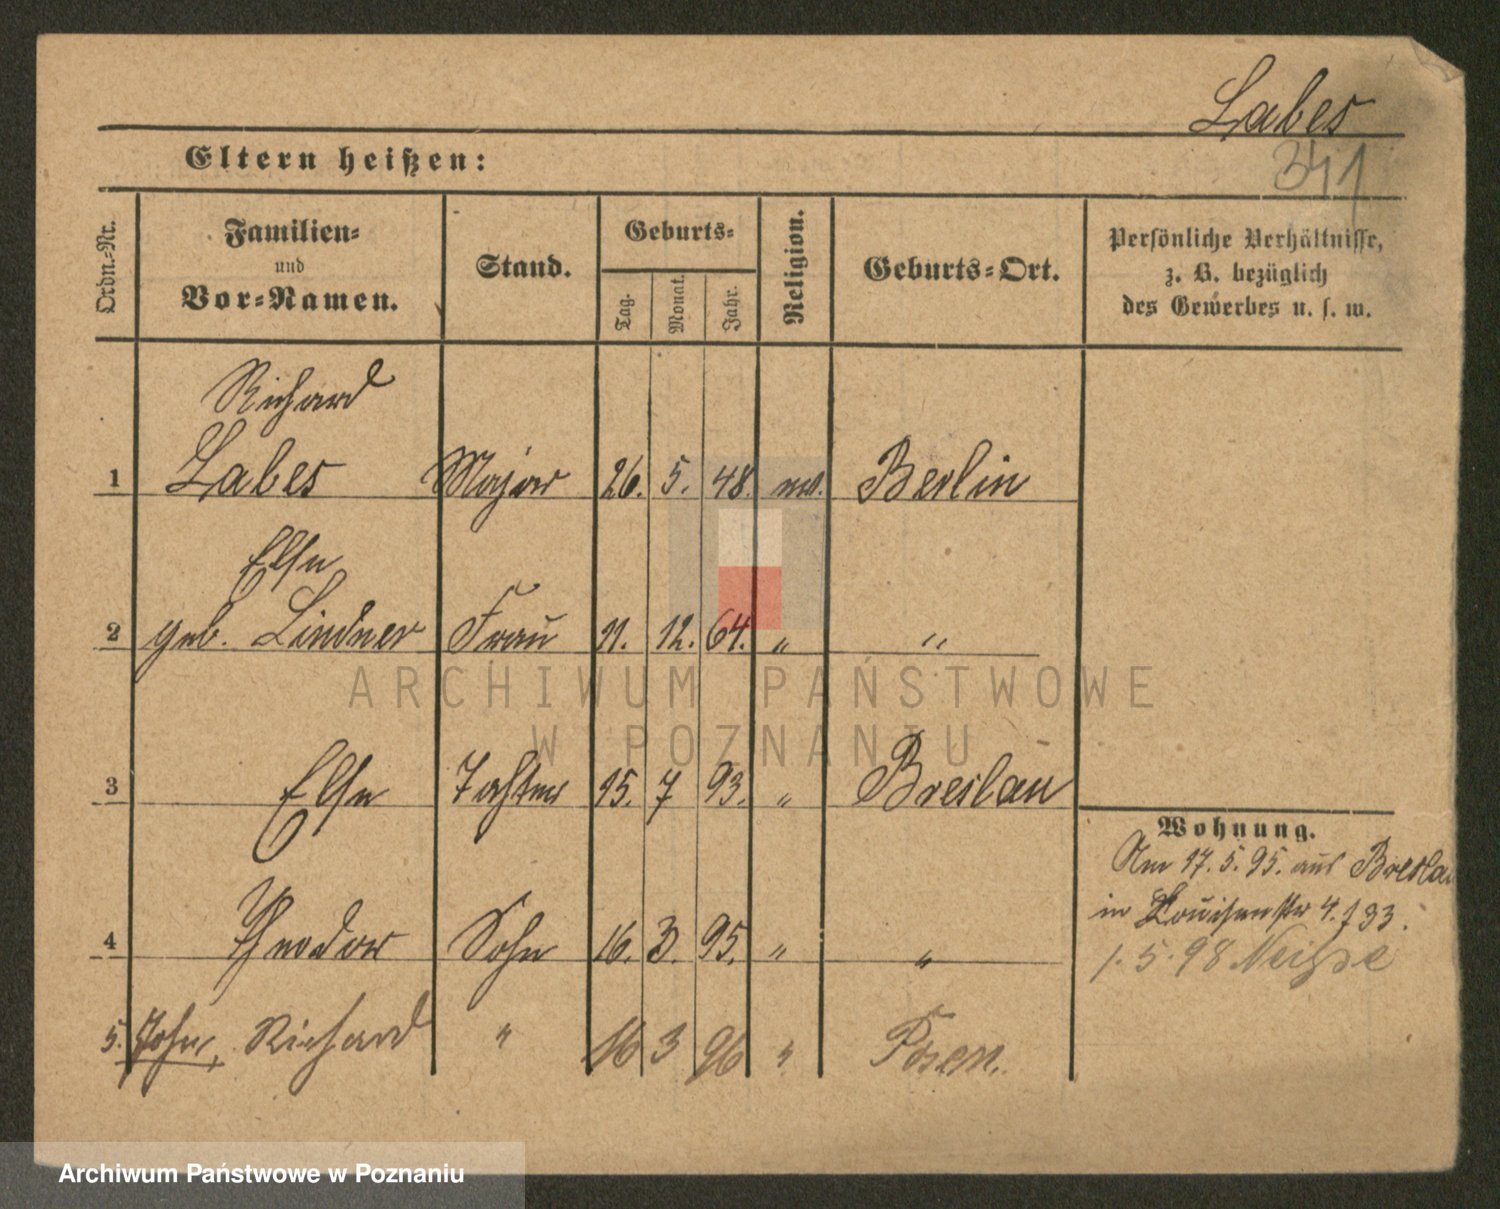 Labes
341
Eltern heißen:
Ordn.-Nr.
Familien-
und
Vor-Namen.
Stand.
Geburts-
Tag.
Monat.
Jahr.
Religion.
Geburts-Ort.
Persönliche Verhältnisse,
z. B. bezüglich
des Gewerbes u. s. w.
Richard
1 Labes Major 26. 5. 48. ev. Berlin
Else
2 geb. Lindner Frau 11. 12. 64. " "
ARCHIWUM PAŃSTWOWE
W POZNANIU
3 Else Tochter 15. 7 93. " Breslau
Wohnung.
Am 17. 5. 95. aus Breslau
in Louisenstr 4. 193.
4 Theodor Sohn 16. 3. 95. " "
1. 5. 98 Neisse
5. John, Richard " 16 3 96 " Posen.
Archiwum Państwowe w Poznaniu